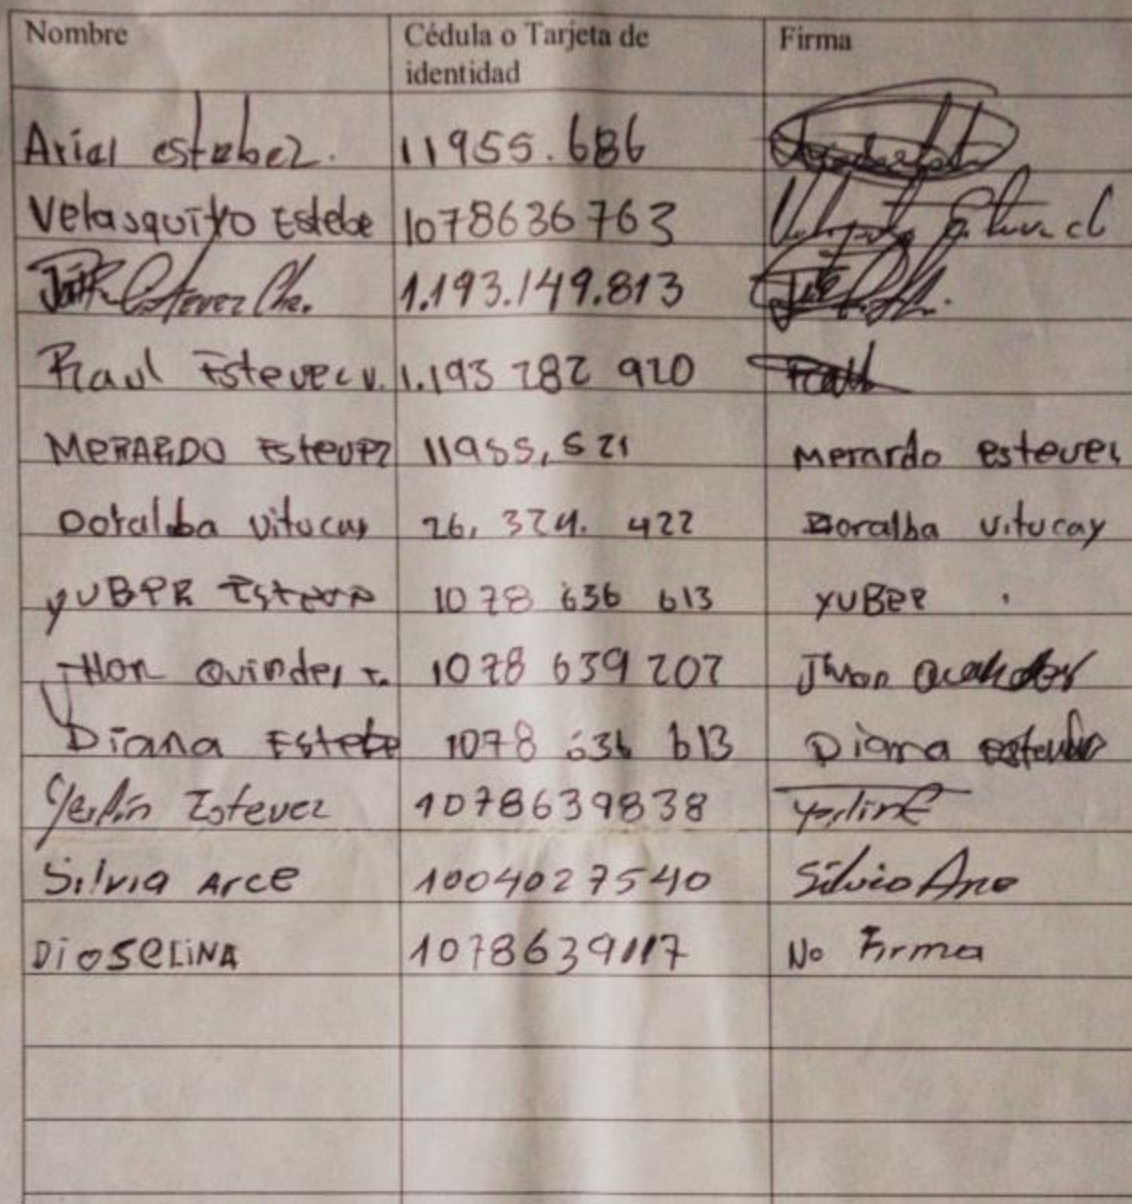 Nombre Cédula o Tarjeta de identidad Firma
Arial estebez. 11955.686
Velasquito Estebe 1078636763
Estevez Che. 1.193.149.813
Raul Estevec v. 1.193 282 920 Raul
MERARDO Estevez 11955,521 Merardo estevez
Doralba vitucay 26, 324. 422 Doralba vitucay
YUBER Esteve 1078 636 613 YUBER
Jhon 1078 639 202 Jhon
Diana Estebe 1078 636 613 Diana
Yerlin Estevez 1078639838 Yerlin E
Silvia Arce 1004027540 Silvia Arce
DIOSELINA 1078639117 No Firma